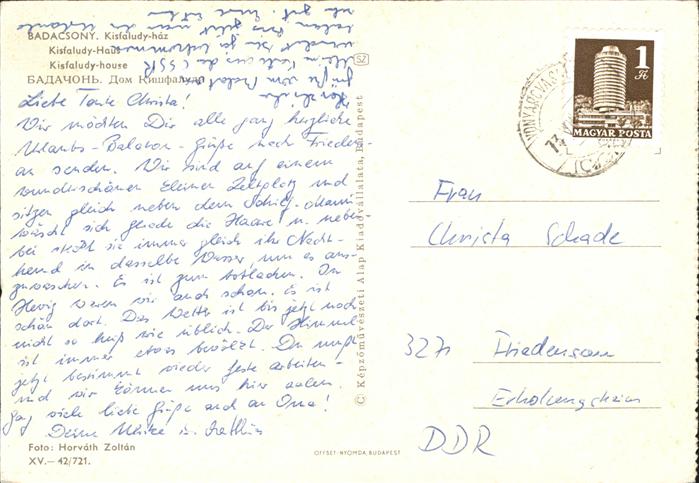 BADACSONY. Kisfaludy-ház
Kisfaludy-Haus
Kisfaludy-house
БАДАЧОНЬ. Дом Кишфалуди
Liebe Tante Christa!
Wir möchten Dir alle ganz herzliche
Urlaubs-Balaton-Grüße nach Frieden-
au senden. Wir sind auf einem
wunderschönen kleinen Zeltplatz und
sitzen gleich neben dem Schilf. Mami
wäscht sich gerade die Haare u. neben-
bei steckt sie immer gleich ihr Nacht-
hemd in dasselbe Wasser, um es aus-
zuwaschen. Es ist zum totlachen. In
Heviz waren wir auch schon. Es ist
schön dort. Das Wetter ist bis jetzt noch
nicht so heiß wie üblich. Der Himmel
ist immer etwas bewölkt. Du mußt
jetzt bestimmt wieder feste arbeiten
und wir können uns hier aalen.
Ganz viele liebe Grüße auch an Oma!
Deine Ulrike u.
Herzliche
Grüße vom
Foto: Horváth Zoltán
XV.— 42/721.
SZ
© Képzőművészeti Alap Kiadóvállalata, Budapest
OFFSET-NYOMDA, BUDAPEST
1 Ft
MAGYAR POSTA
Frau
Christa Schade
3271 Friedensau
Erholungsheim
DDR